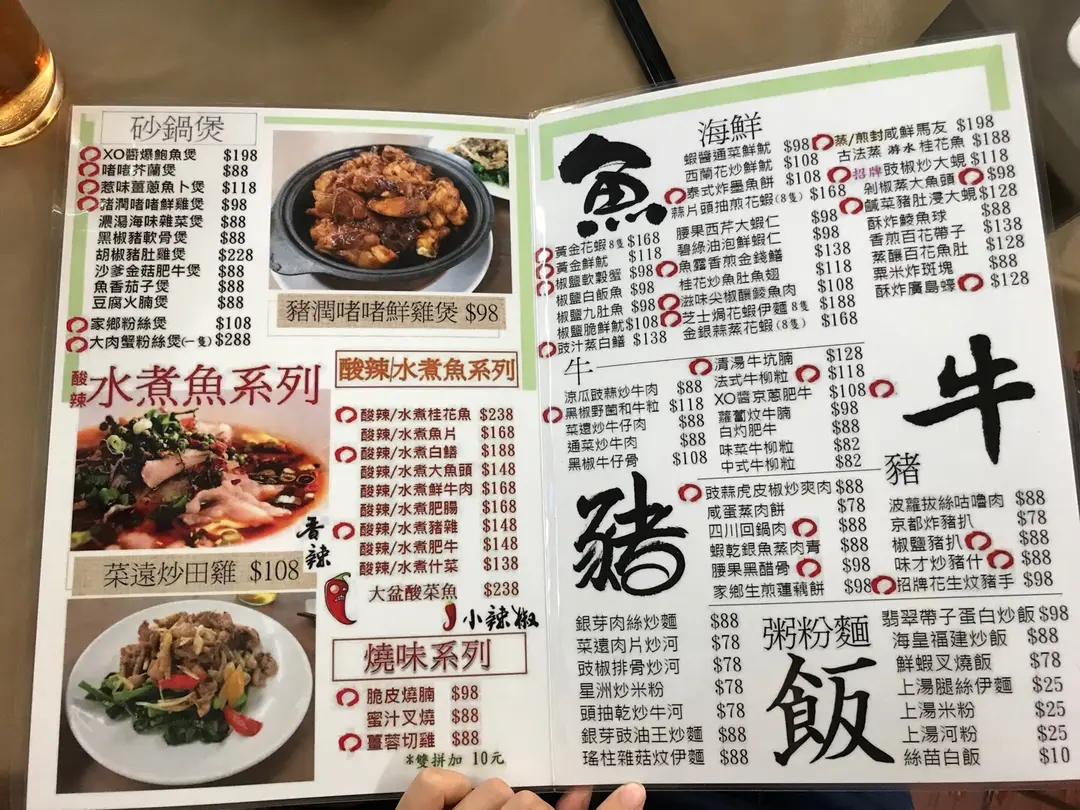 砂鍋煲
XO醬爆鮑魚煲 $198
啫啫芥蘭煲 $88
惹味薑蔥魚卜煲 $118
豬潤啫啫鮮雞煲 $98
濃湯海味雜菜煲 $88
黑椒豬軟骨煲 $88
胡椒豬肚雞煲 $228
沙爹金菇肥牛煲 $88
魚香茄子煲 $88
豆腐火腩煲 $88
家鄉粉絲煲 $108
大肉蟹粉絲煲(一隻) $288
豬潤啫啫鮮雞煲 $98
酸辣水煮魚系列
香辣
菜遠炒田雞 $108
酸辣/水煮魚系列
酸辣/水煮桂花魚 $238
酸辣/水煮魚片 $168
酸辣/水煮白鱔 $188
酸辣/水煮大魚頭 $148
酸辣/水煮鮮牛肉 $168
酸辣/水煮肥腸 $168
酸辣/水煮豬雜 $148
酸辣/水煮肥牛 $148
酸辣/水煮什菜 $138
大盆酸菜魚 $238
小辣椒
燒味系列
脆皮燒腩 $98
蜜汁叉燒 $88
薑蓉切雞 $88
*雙拼加 10元
魚
海鮮
蝦醬通菜鮮魷 $98
西蘭花炒鮮魷 $108
泰式炸墨魚餅 $108
蒜片頭抽煎花蝦(8隻) $168
腰果西芹大蝦仁 $98
碧綠油泡鮮蝦仁 $98
魚露香煎金錢鱔 $138
桂花炒魚肚魚翅 $118
滋味尖椒釀鯪魚肉 $108
芝士焗花蝦伊麵 8隻 $188
金銀蒜蒸花蝦(8隻) $168
黃金花蝦 8隻 $168
黃金鮮魷 $118
椒鹽軟殼蟹 $98
椒鹽白飯魚 $98
椒鹽九肚魚 $98
椒鹽脆鮮魷 $108
豉汁蒸白鱔 $138
蒸/煎封咸鮮馬友 $198
古法蒸 游水 桂花魚 $188
招牌 豉椒炒大蜆 $118
剁椒蒸大魚頭 $98
鹹菜豬肚浸大蜆 $128
酥炸鯪魚球 $88
香煎百花帶子 $138
蒸釀百花魚肚 $128
粟米炸斑塊 $88
酥炸廣島蠔 $128
牛
涼瓜豉蒜炒牛肉 $88
黑椒野菌和牛粒 $118
菜遠炒牛仔肉 $88
通菜炒牛肉 $88
黑椒牛仔骨 $108
清湯牛坑腩 $128
法式牛柳粒 $118
XO醬京蔥肥牛 $108
蘿蔔炆牛腩 $98
白灼肥牛 $88
味菜牛柳粒 $82
中式牛柳粒 $82
牛
豬
豬
豉蒜虎皮椒炒爽肉 $88
咸蛋蒸肉餅 $78
四川回鍋肉 $88
蝦乾銀魚蒸肉青 $88
腰果黑醋骨 $88
家鄉生煎蓮藕餅 $98
波蘿拔絲咕嚕肉 $88
京都炸豬扒 $78
椒鹽豬扒 $88
味才炒豬什 $88
招牌花生炆豬手 $98
粥粉麵
飯
銀芽肉絲炒麵 $88
菜遠肉片炒河 $78
豉椒排骨炒河 $78
星洲炒米粉 $78
頭抽乾炒牛河 $78
銀芽豉油王炒麵 $88
瑤柱雜菇炆伊麵 $88
翡翠帶子蛋白炒飯 $98
海皇福建炒飯 $88
鮮蝦叉燒飯 $78
上湯腿絲伊麵 $25
上湯米粉 $25
上湯河粉 $25
絲苗白飯 $10